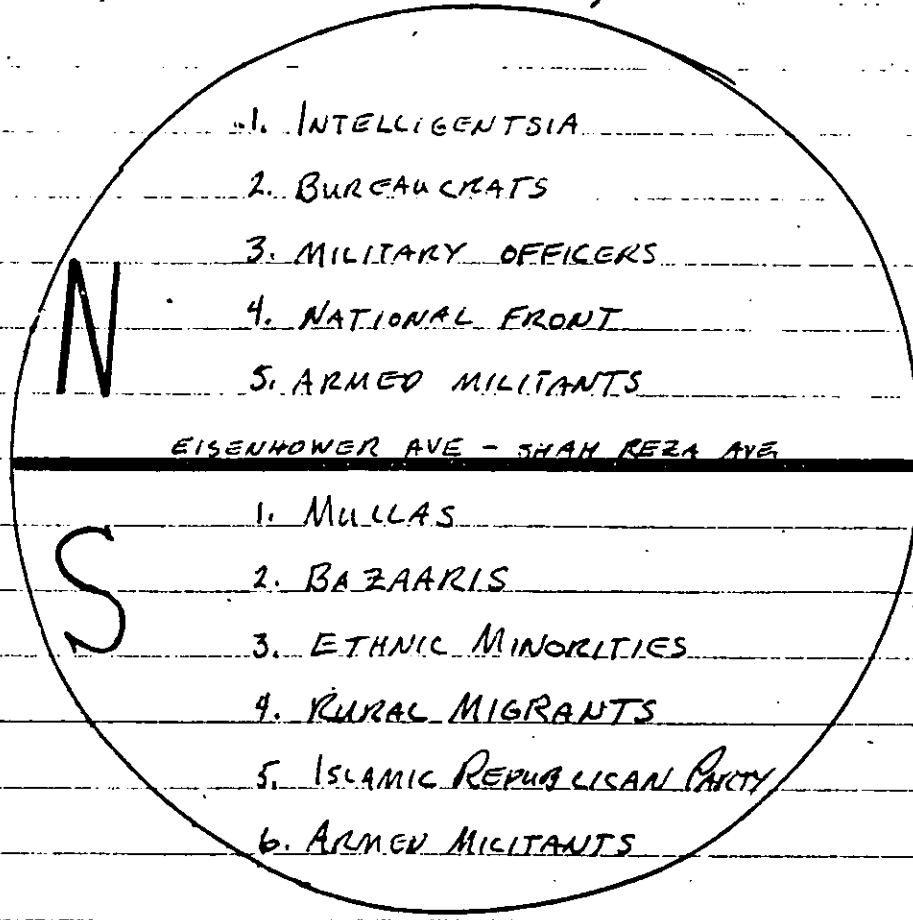 1. INTELLIGENTSIA
2. BUREAUCRATS
3. MILITARY OFFICERS
N
4. NATIONAL FRONT
5. ARMED MILITANTS
EISENHOWER AVE - SHAH REZA AVE
1. MULLAS
S
2. BAZAARIS
3. ETHNIC MINORITIES
4. RURAL MIGRANTS
5. ISLAMIC REPUBLICAN PARTY
6. ARMED MILITANTS